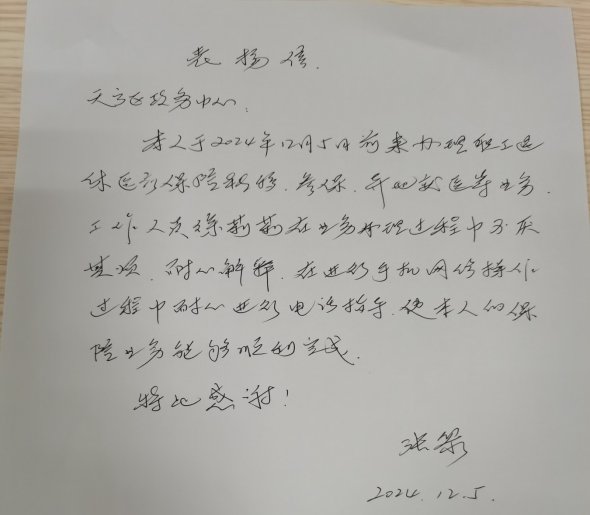 表扬信.
天宁区政务中心.
本人于2024年12月5日前来办理职工退
休医疗保险转移、参保、异地就医等业务.
工作人员徐莉莉在业务办理过程中不厌
其烦、耐心解释、在进行手机网络操作
过程中耐心进行电话指导、使本人的保
险业务能够顺利完成.
特此感谢!
张
2024.12.5.